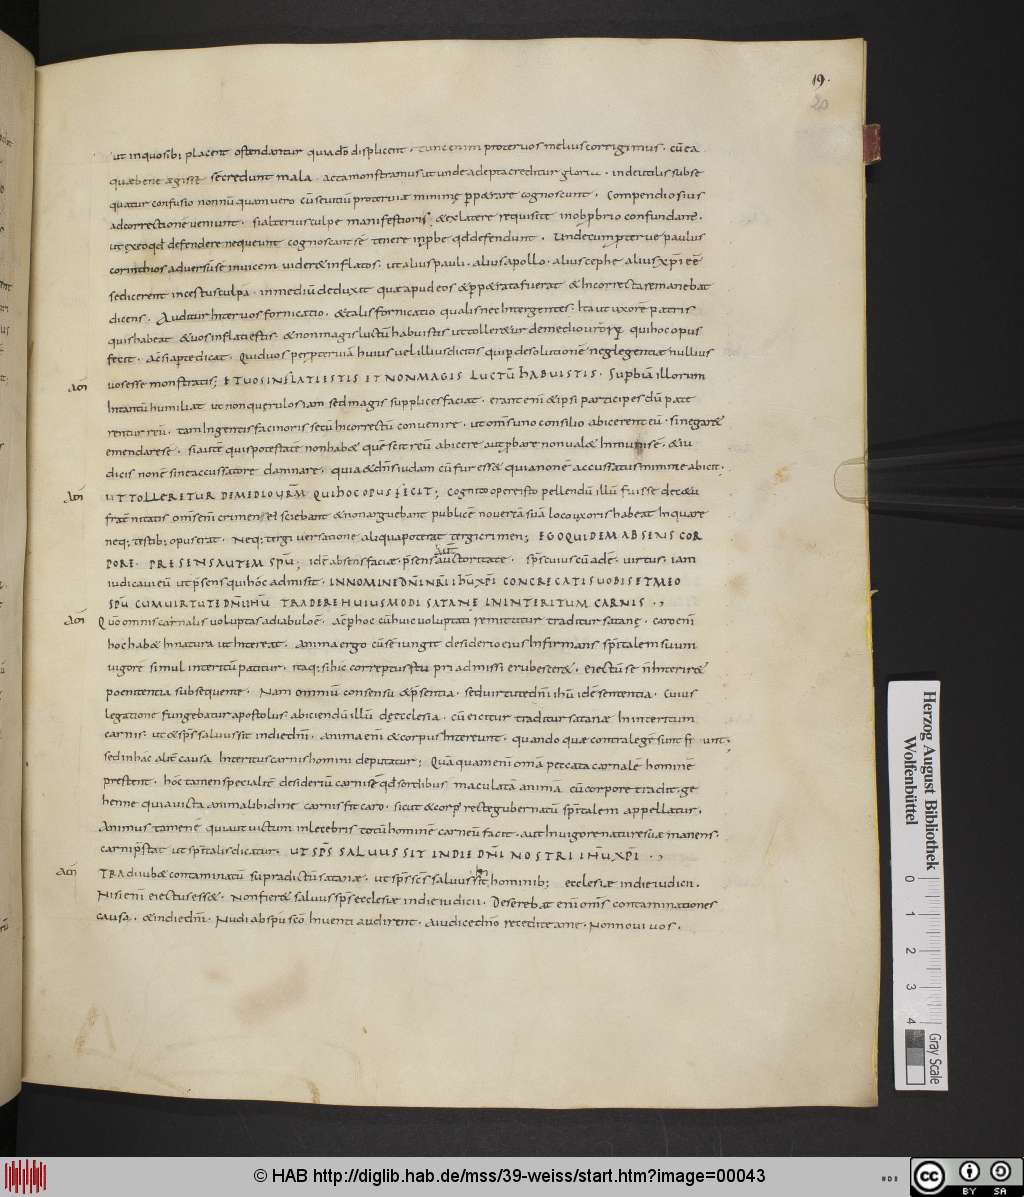 19.
20
ut in quo sibi placent ostendantur quia dō displicent. tunc enim protervos melius corrigimus. cū ea
quae bene aegisse se credunt mala. acta monstramus ut unde adepta creditur gloria. inde utilis subse
quatur confusio nonnūquam vero cū se vitiū proterviae minimę ꝑpaetrare cognoscunt. Compendiosius
ad correctionē veniunt. si alterius culpe manifestioris & ex latere requisitę in obprobrio confundant̄.
ut ex eo qd̄ defendere nequeunt cognoscant sē tenere inp̄be qd̄ defendunt. Unde cum proterve paulus
corinthios adversū sē invicem videret inflatos. ut alius pauli. alius apollo. alius cephe alius xp̄i eē
se dicerent incestus culpā. in mediū deduxit quae apud eos & ꝑpaetrata fuerat & incorrecta remanebat
dicens. Auditur inter vos fornicatio. & talis fornicatio qualis nec inter gentes. ita ut uxorē patris
quis habeat & vos inflati estis. & non magis luctū habuistis ut tolleret̄ur de medio vr̄orum qui hoc opus
fecit. Ac si aperte dicat. Quid vos per proterviā huius vel illius dicitis qui ꝑ desolutionē neglegentiae nullius
vos esse monstratis; ET VOS INFLATI ESTIS ET NON MAGIS LUCTŪ HABUISTIS. Supbiā illorum
in tantū humiliat ut non querulos iam sed magis supplices faciat. erant enī & ipsi participes dū pate
rentur reū. tam ingentis facinoris secū incorrectū convenire. ut om̄s uno consilio abicerent eū. si negaret
emendare sē. si autē quis potestatē non habet quē scit reū abicere aut ꝓbare non valet immunis ē. & iu
dicis non ē sine accussatore damnare. quia & dn̄s iudam cū fur esset quia non ē accussatus minime abicit.
UT TOLLERETUR DE MEDIO VR̄M QUI HOC OPUS FECIT; cognito opere isto pellendū illū fuisse de cœtu
fraternitatis om̄s enī crimen ei sciebant & non arguebant publicē novercā suā loco uxoris habeat in qua re
neq; testib; opus erat. Neq; tergiversatione aliqua poterat tergi crimen; EGO QUIDEM ABSENS COR
PORE. PRESENS AUTEM SPŪ; idē absens faciae p̄sens auctoritate. sp̄s cuius cū adē. virtus. iam
iudicavi eū ut p̄sens qui hoc admisit. IN NOMINE DN̄I NR̄I IHŪ XP̄I CONGREGATIS VOBIS ET MEO
SPŪ CUM VIRTUTE DN̄I IHŪ TRADERE HUIUSMODI SATANE IN INTERITUM CARNIS.,
Quō omnis carnalis voluptas a diabulo ē. Ac ꝑ hoc cū huic voluptati remittitur traditur satanę. caro enī
hoc habet in natura ut intereat. Anima ergo cū sē iungit desiderio eius infirmans sp̄italem suum
vigorē simul interitū patitur. itaq; si hic correptus stu pri admissi erubesceret. eiectū se n̄ interiret
poenitentia subsequente. Nam omniū consensu & p̄sentia. sed virtute dn̄i ihū idē sententia. Cuius
legatione fungebatur apostolus. abiciendū illū de ecclesia. cū eicitur traditur satanae in interitum
carnis. ut & sp̄s salvus sit in die dn̄i. anima enī & corpus intereunt. quando quae contra legē sunt fi unt.
sed in hac altē causa. Interitus carnis homini deputatur; Quā quam enī om̄a peccata carnalē hominē
prestent. hoc tamen specialiē desideriū carnis ē qd̄ sordibus maculatā animā cū corpore tradit. ge
henne quia victa anima libidine carnis fit caro. sicut & corp̄ recte gubernatū sp̄italem appellatur.
Animus tamen ē qui aut victum inlecebris totū hominē carneū facit. aut in vigore nature suae manens.
carni p̄stat ut sp̄italis dicatur. UT SP̄S SALVUS SIT IN DIE DN̄I NOSTRI IHŪ XP̄I.,
TRAdi iubet contaminatū supra dictū satanae. ut sp̄s sc̄s salvus sit hominib; ecclesiae in die iudicii.
Nisi enī eiectus esset. Non fieret salvus sp̄s ecclesiae in die iudicii. Deserebat enī om̄s contaminationes
causa. & in die dn̄i. Nudi ab sp̄u sc̄o inventi audirent. A iudice dn̄o recedite a me. Non novi vos.
Herzog August Bibliothek
Wolfenbüttel
0 1 2 3 4
Gray Scale
© HAB http://diglib.hab.de/mss/39-weiss/start.htm?image=00043
cc BY SA